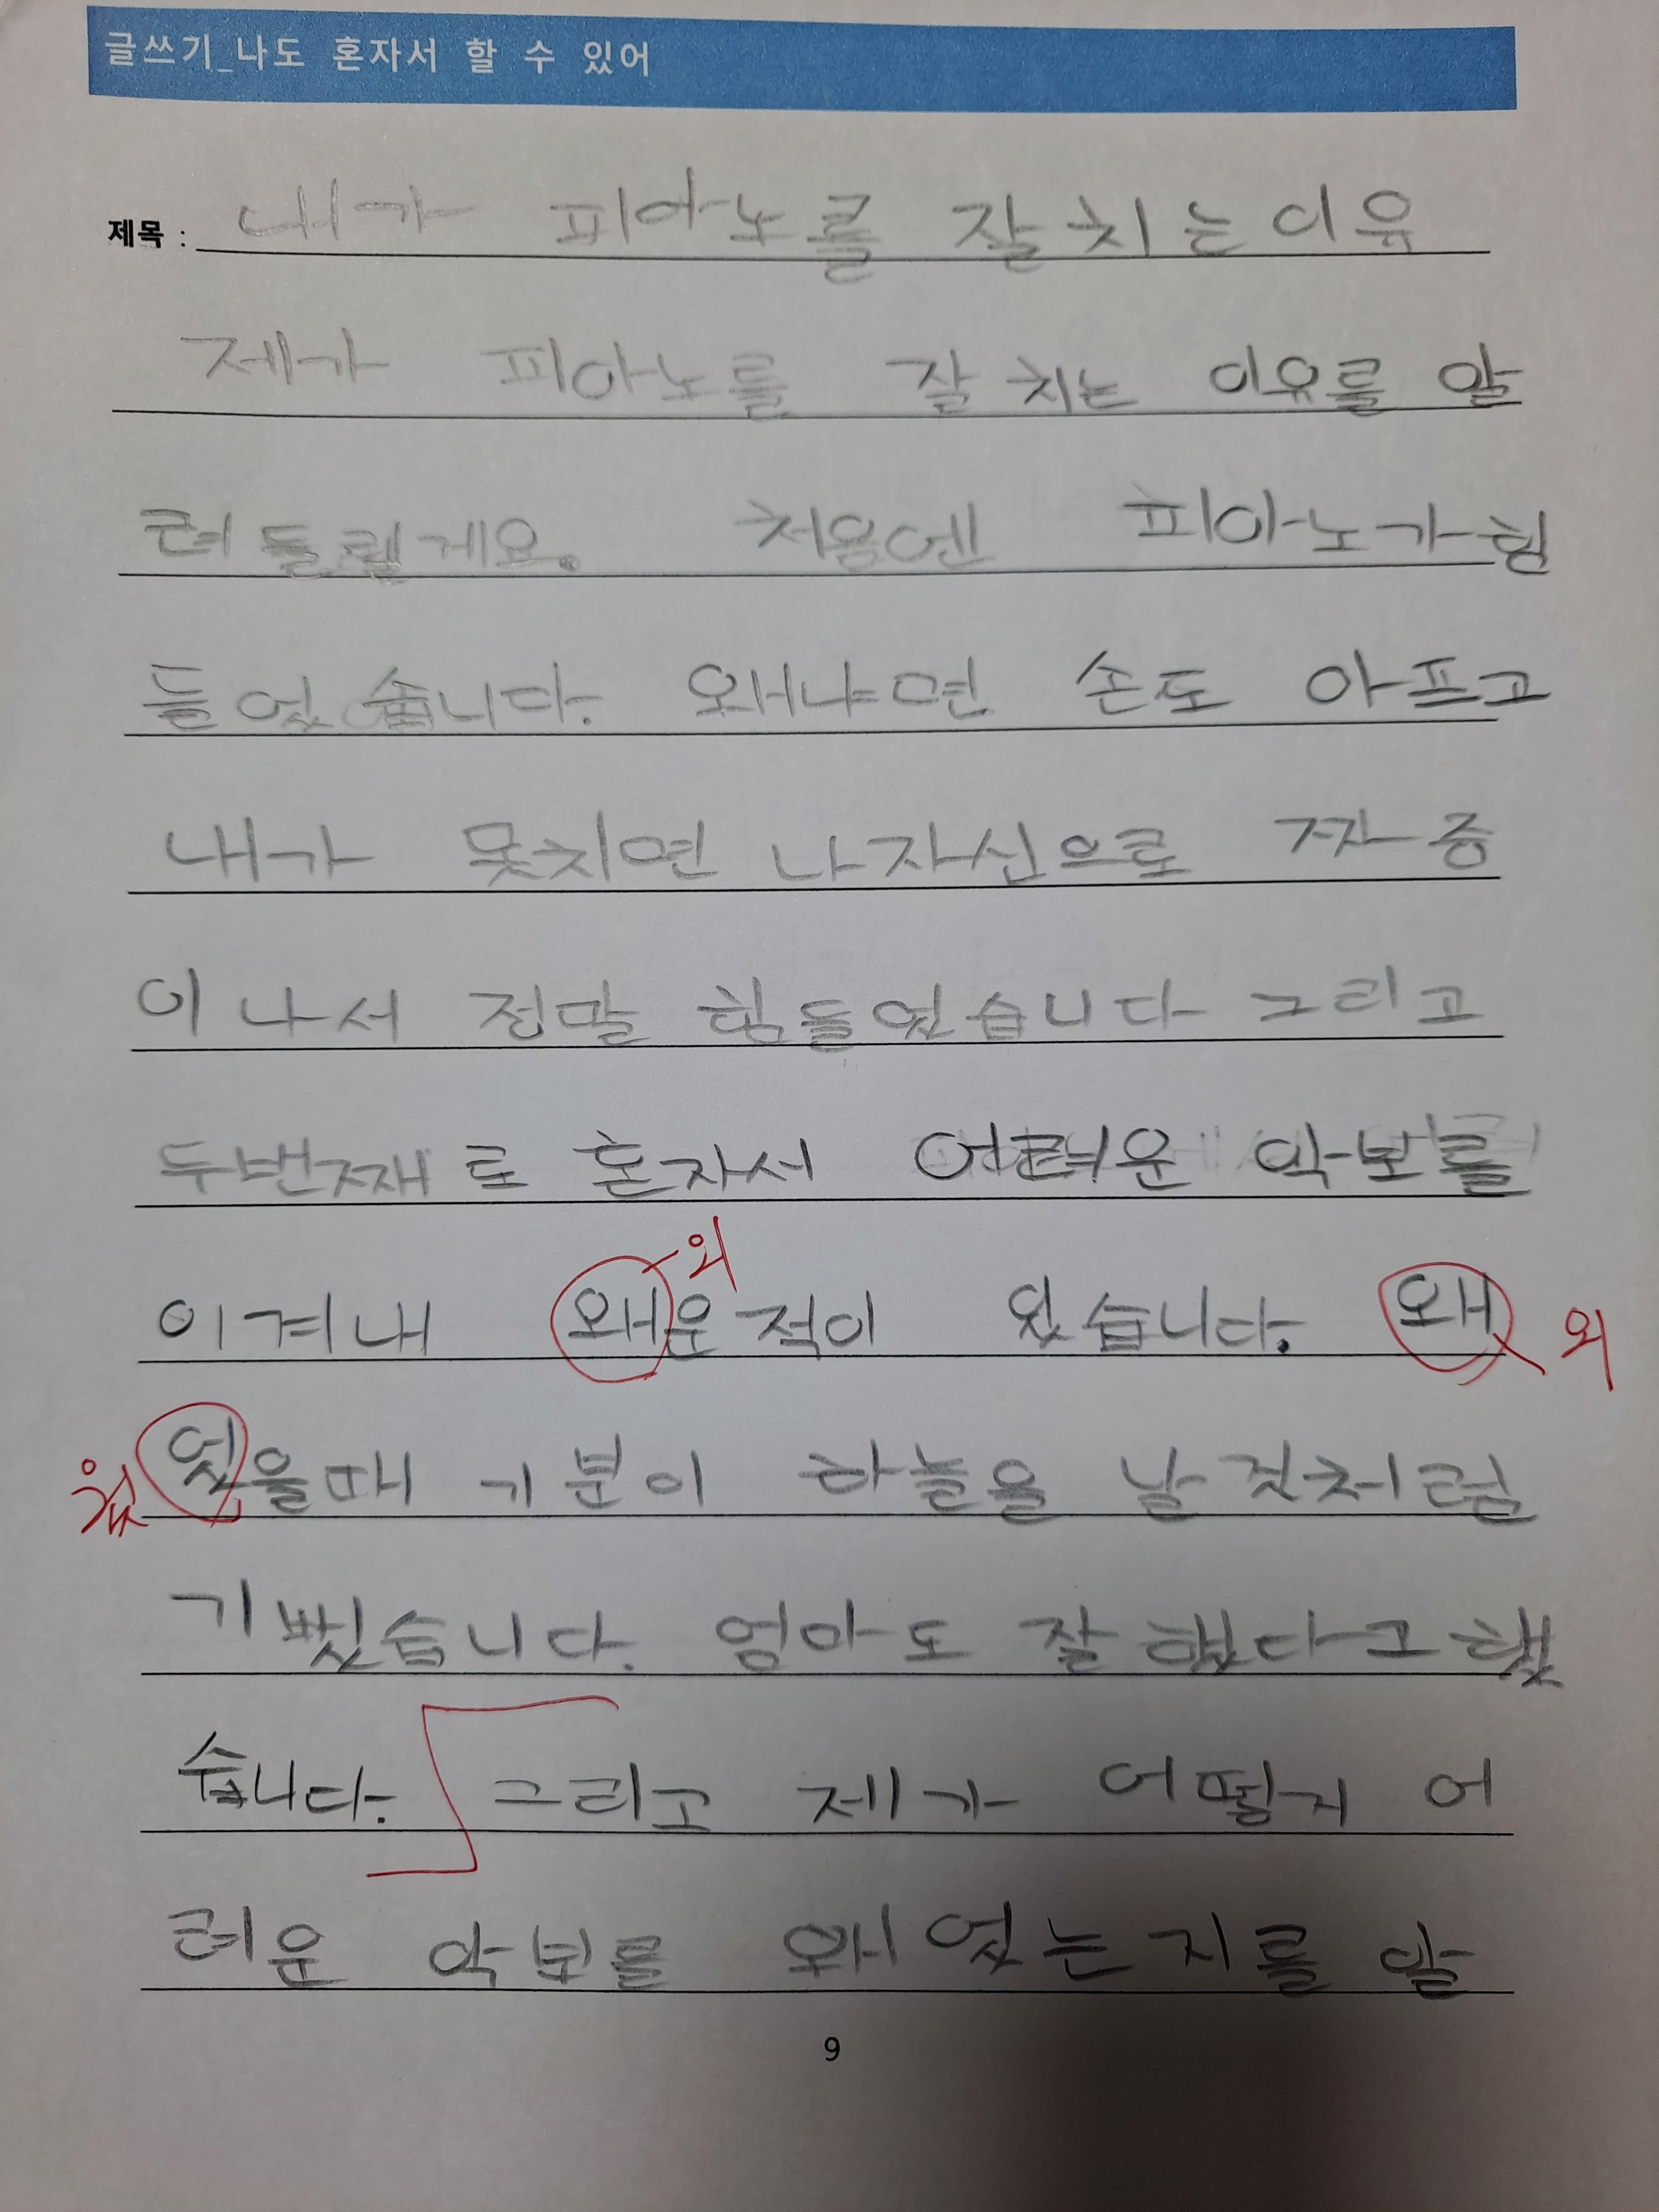 글쓰기_나도 혼자서 할 수 있어
제목 : 내가 피아노를 잘 치는 이유
제가 피아노를 잘 치는 이유를 알
려 드릴게요. 처음엔 피아노가 힘
들었습니다. 왜냐면 손도 아프고
내가 못치면 나자신으로 짜증
이 나서 정말 힘들었습니다 그리고
두번째로 혼자서 어려운 악보를
외
이겨내 왜운 적이 있습니다. 왜
외
웠
엇을때 기분이 하늘을 날 것처럼
기뻤습니다. 엄마도 잘 했다고 했
습니다. 그리고 제가 어떻게 어
려운 악보를 왜었는지를 알
9